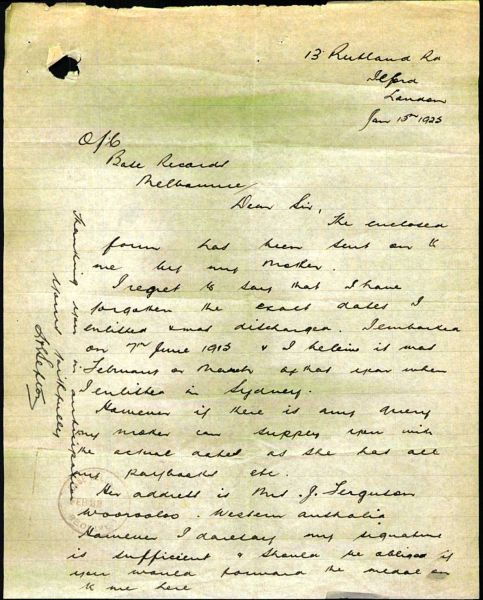 13 Rutland Rd
Ilford
London
Jan 15th 1923
O/C
Base Records
Melbourne
Dear Sir,
The enclosed
form has been sent on to
me by my Mother.
I regret to say that I have
forgotten the exact dates I
enlisted & was discharged. I embarked
on 7th June 1915 & I believe it was
February or March of that year when
I enlisted in Sydney.
However if there is any query
my mother can supply you with
the actual dates as she has all
my paybooks etc.
Her address is Mrs J. Ferguson
Wooroloo. Western Australia
However I daresay my signature
is sufficient & should be obliged if
you would forward the medal on
to me here
Thanking you in anticipation
Yours faithfully